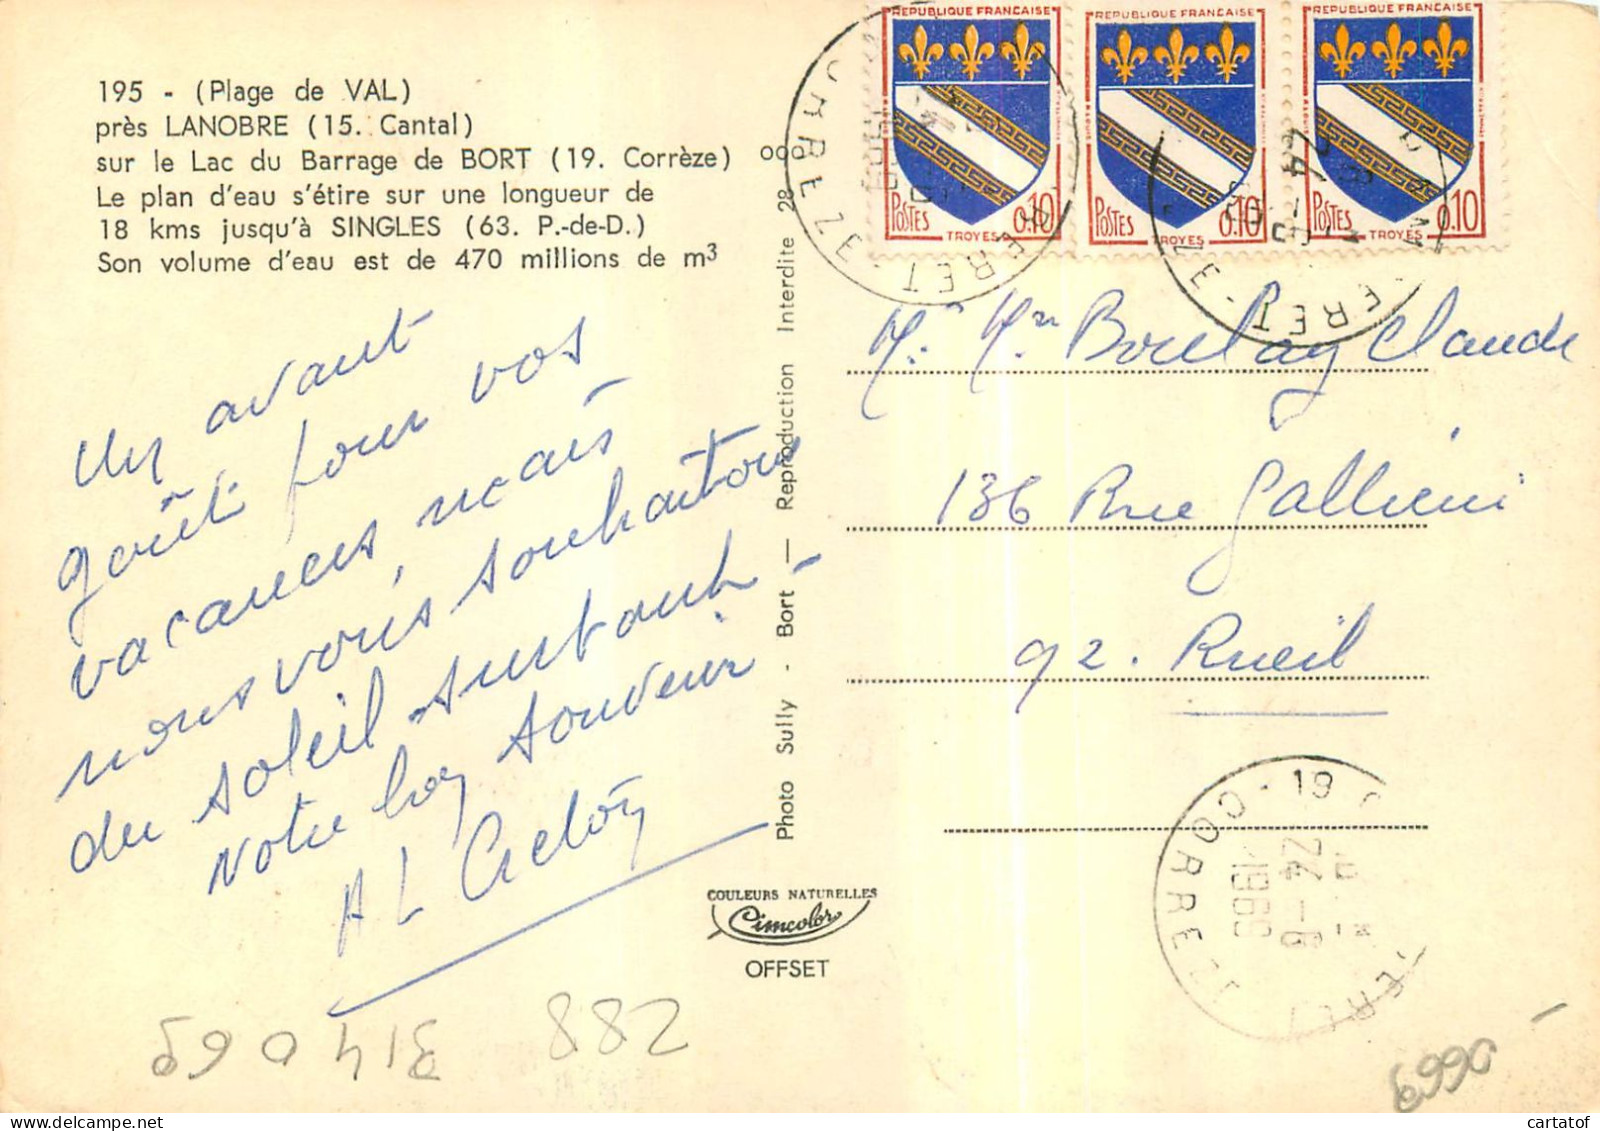 195 - (Plage de VAL)
près LANOBRE (15. Cantal)
sur le Lac du Barrage de BORT (19. Corrèze)
Le plan d'eau s'étire sur une longueur de
18 kms jusqu'à SINGLES (63. P.-de-D.)
Son volume d'eau est de 470 millions de m³
Un avant
goût pour vos
vacances, mais
nous vous souhaitons
du soleil surtout -
Notre bon souvenir
A L
Photo Sully - Bort — Reproduction Interdite 28 000
COULEURS NATURELLES
Cimcolor
OFFSET
REPUBLIQUE FRANÇAISE
POSTES 0.10
TROYES
REPUBLIQUE FRANÇAISE
POSTES 0.10
TROYES
REPUBLIQUE FRANÇAISE
POSTES 0.10
TROYES
M. Mme Boulay Claude
136 Rue Galliéni
92. Rueil
19
24 - 6
1969
CORREZE
882
31 4 0 69
cartatof